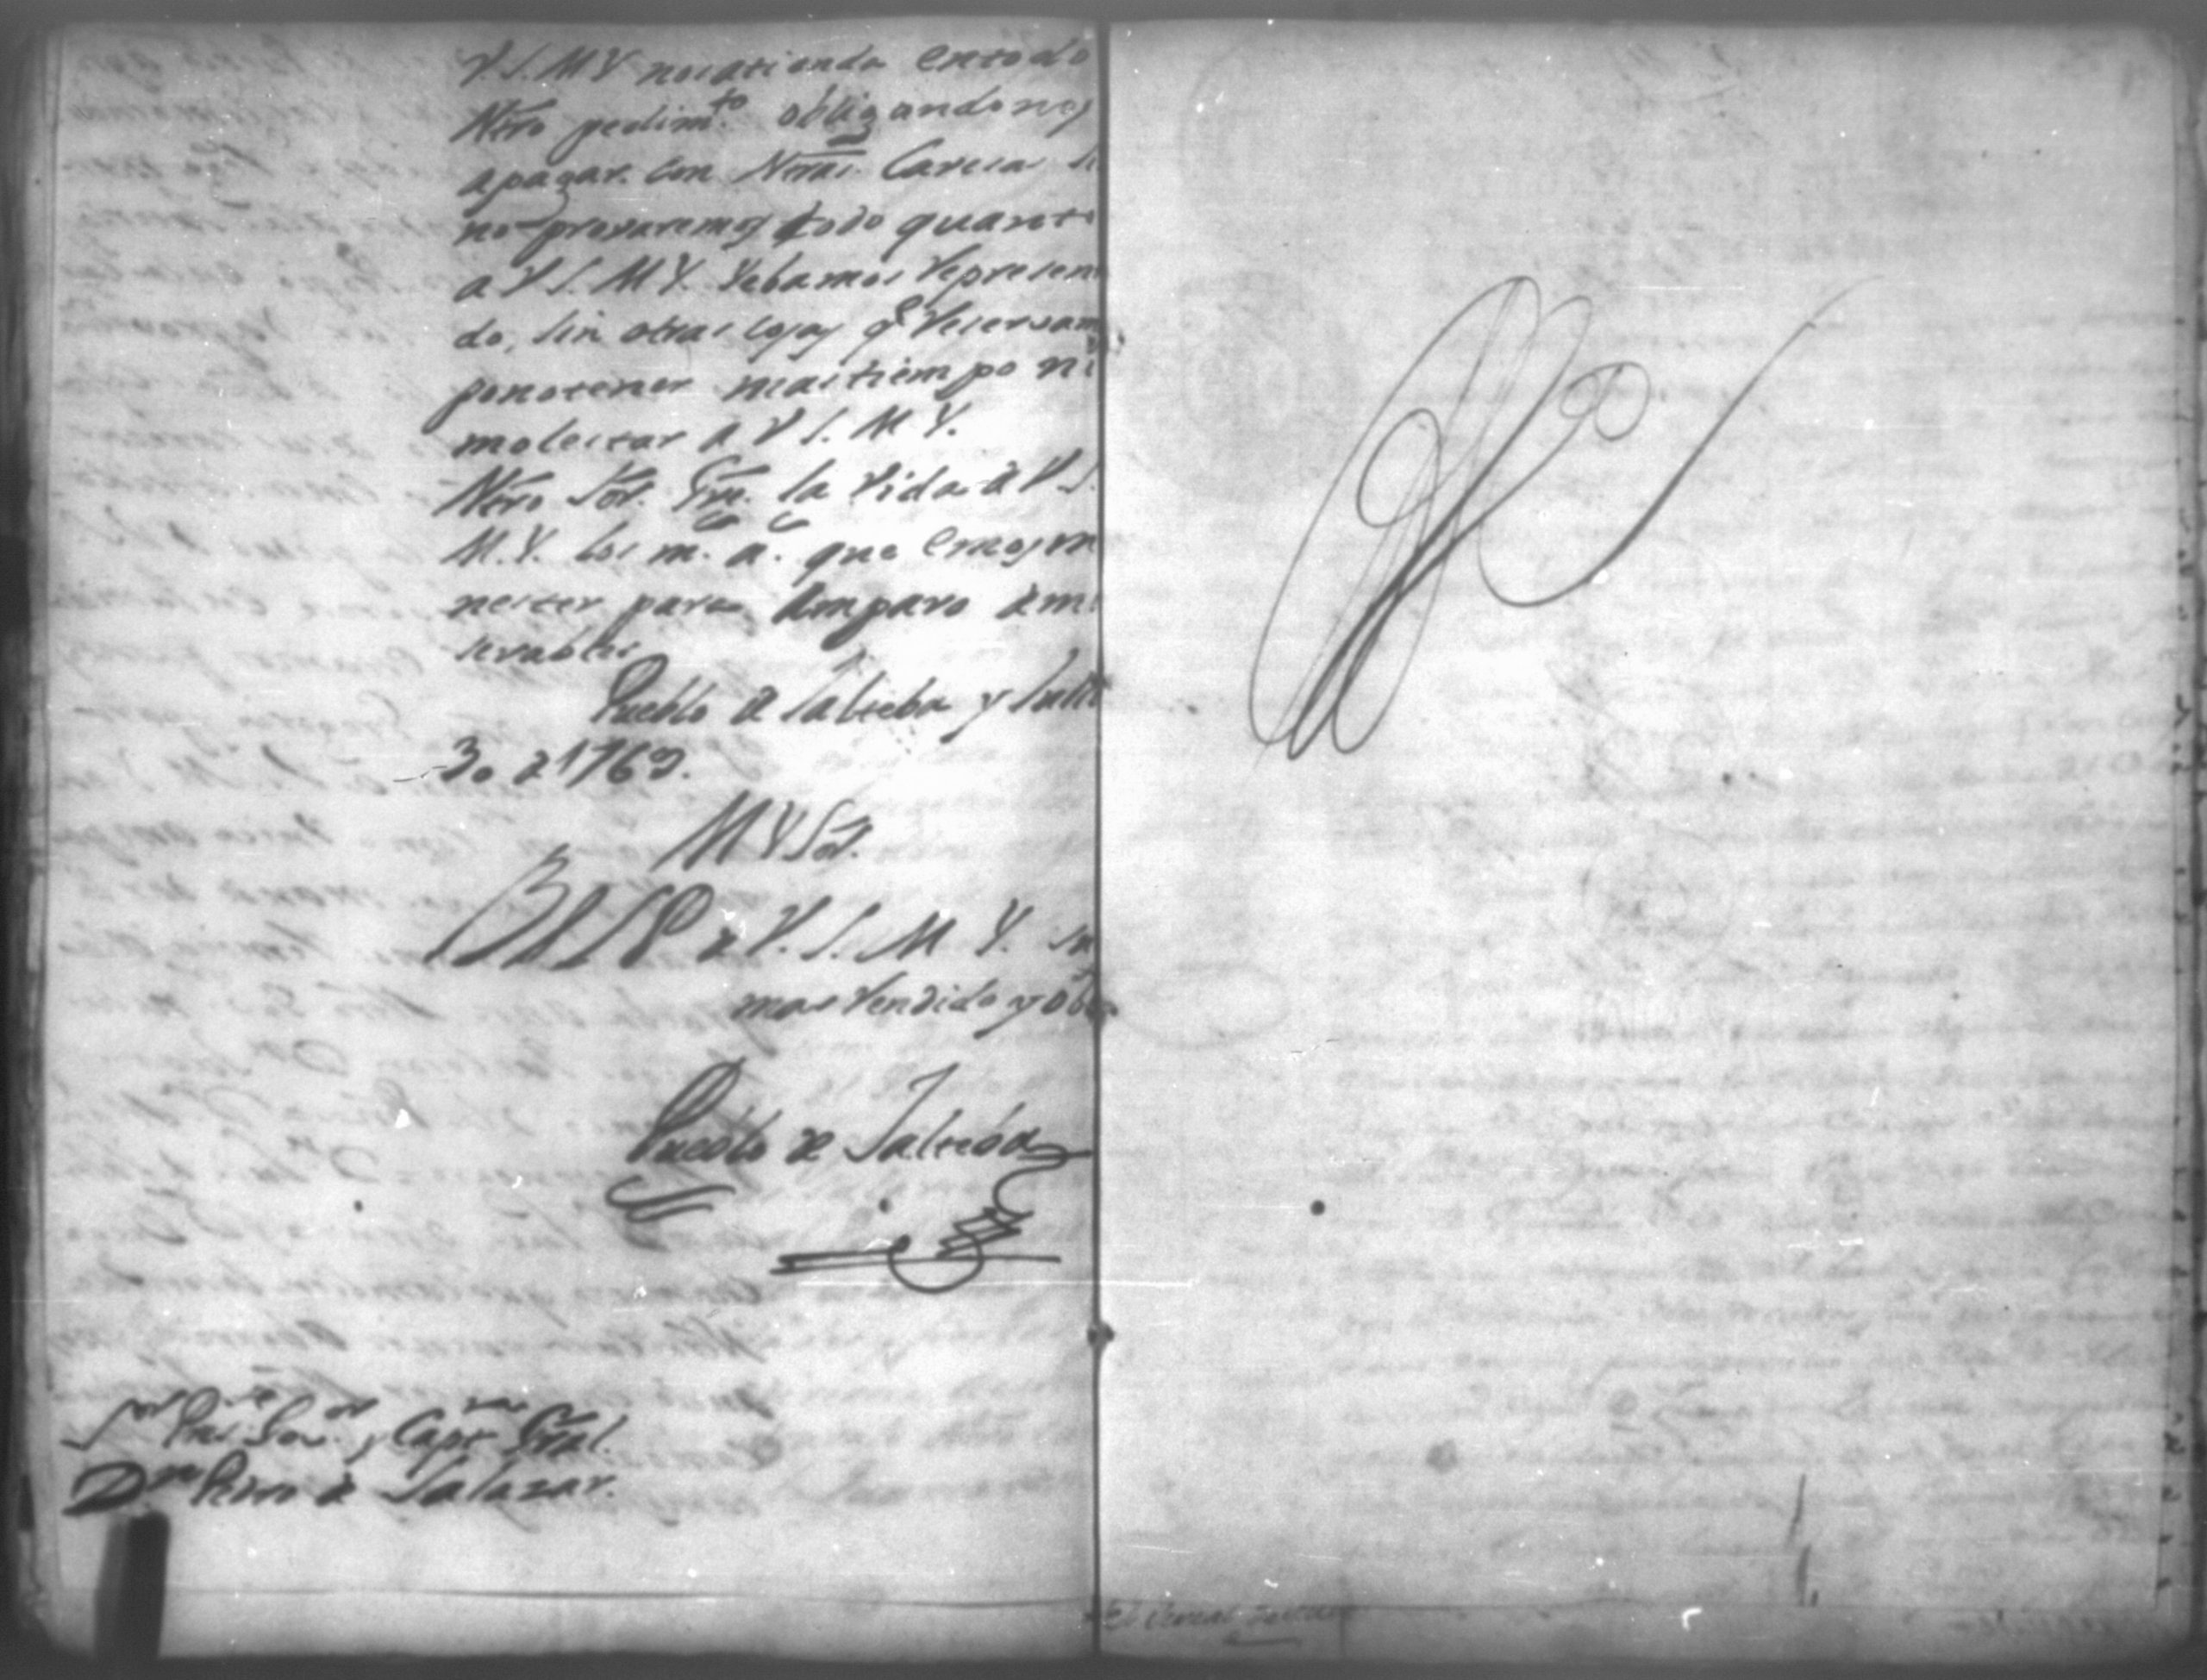 V S. M Y nos atienda en todo
Ntro pedim.to obligandonos
a pagar. con Ntras. Caveza si
no provaremos todo quanto
a V S. M Y. llebamos represen
do, sin otras cosas q.e reserbam
ponotener mas tiempo ni
molestar a V S. M Y.
Ntro Sor. Gue. la Vida a V S.
M. Y. los m.s a.s que emos m
nester para Amparo de mi
serables
Pueblo de Jalieba y Julio
30 de 1769.
M Y Sor.
B L S P de V. S. M Y. su
mas Rendido y ob
Pueblo de Jalieba
Sor Pres.te Gov.or y Cap.n Gral.
Dn Pedro de Salazar.